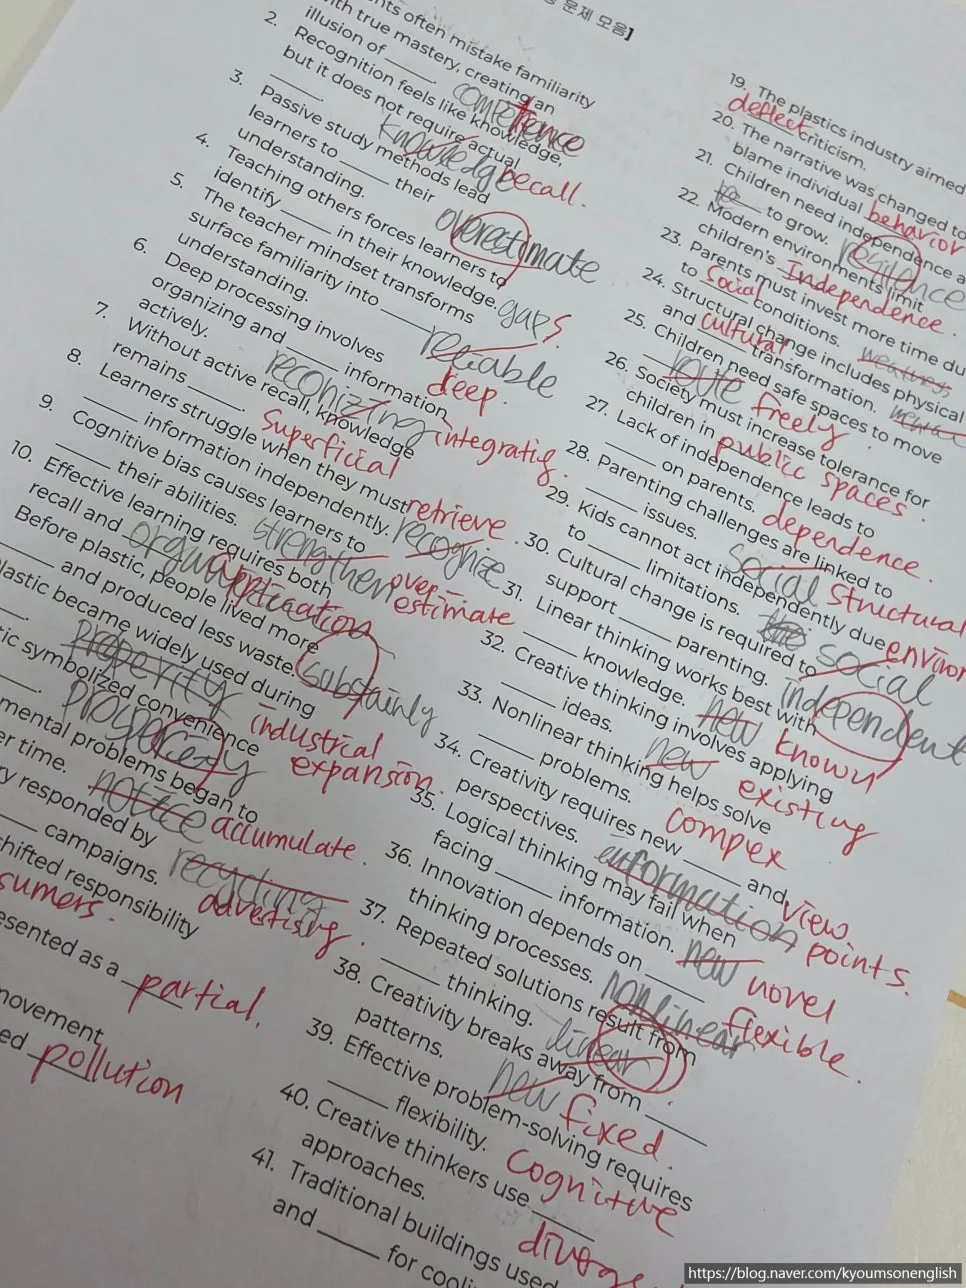 문제 모음]
often mistake familiarity
with true mastery, creating an
illusion of ____. competence
2. Recognition feels like knowledge,
but it does not require actual
____. knowledge recall.
3. Passive study methods lead
learners to ____ their overestimate
understanding.
4. Teaching others forces learners to
identify ____ in their knowledge. gaps
5. The teacher mindset transforms
surface familiarity into ____ reliable deep.
understanding.
6. Deep processing involves
organizing and ____ information recognizing integrating.
actively.
7. Without active recall, knowledge
remains ____. superficial
8. Learners struggle when they must retrieve.
____ information independently. recognize
9. Cognitive bias causes learners to
____ their abilities. strengthen over-
estimate
10. Effective learning requires both
recall and application
Before plastic, people lived more
____ and produced less waste.
plastic became widely used during
____. industrial
expansion.
tic symbolized convenience
____.
mental problems began to
er time. notice accumulate.
ry responded by
____ campaigns. recycling advertising.
shifted responsibility
sumers.
esented as a partial.
movement
ed pollution
19. The plastics industry aimed
deflect criticism.
20. The narrative was changed to
blame individual behavior
21. Children need independence a
____ to grow.
22. Modern environments limit
children's Independence.
23. Parents must invest more time du
to Social conditions.
24. Structural change includes physical
and cultural transformation.
25. Children need safe spaces to move
____ route freely
26. Society must increase tolerance for
children in public spaces.
27. Lack of independence leads to
____ on parents. dependence.
28. Parenting challenges are linked to
____ issues. Social structural
29. Kids cannot act independently due
to ____ limitations. environ
30. Cultural change is required to social
support ____ parenting. independent
31. Linear thinking works best with
____ knowledge. new known
32. Creative thinking involves applying
____ ideas. new existing
33. Nonlinear thinking helps solve
____ problems. compex
34. Creativity requires new ____ and
perspectives. view
points.
35. Logical thinking may fail when
facing ____ information. new novel
36. Innovation depends on ____
thinking processes. nonlinear flexible.
37. Repeated solutions result from
____ thinking. linear
38. Creativity breaks away from ____
patterns. new fixed.
39. Effective problem-solving requires
____ flexibility. cognitive
40. Creative thinkers use ____
approaches.
41. Traditional buildings used
and ____ for
https://blog.naver.com/kyoumsonenglish